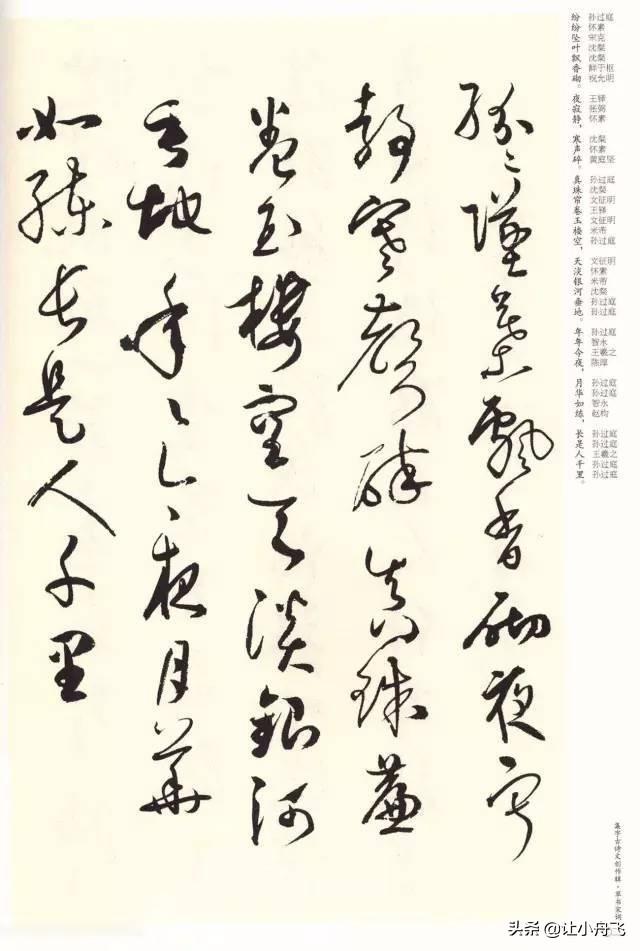 纷 孙过庭
纷 怀素
坠 宋克
叶 沈粲
飘 沈粲
香 鲜于枢
砌。 祝允明
夜 王铎
寂 张弼
静， 怀素
寒 沈粲
声 怀素
碎。 黄庭坚
真 孙过庭
珠 沈粲
帘 文征明
卷 王铎
玉 文征明
楼 米芾
空， 孙过庭
天 文征明
淡 怀素
银 米芾
河 沈粲
垂 孙过庭
地。 孙过庭
年 孙过庭
年 智永
今 王羲之
夜， 陈淳
月 孙过庭
华 孙过庭
如 智永
练， 赵构
长 孙过庭
是 孙过庭
人 王羲之
千 孙过庭
里。 孙过庭
紛〻墜葉飄香砌夜寂
靜寒聲碎真珠簾
卷玉樓空天淡銀河
垂地年〻今夜月華
如練長是人千里
集字古诗文创作辑·草书宋词
头条 @让小舟飞